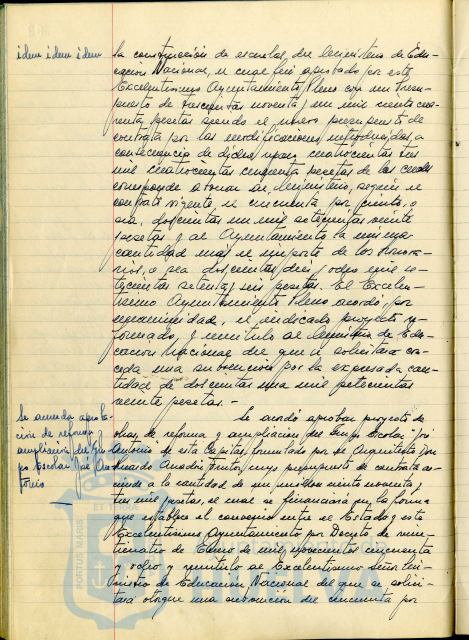 idem idem idem
la construcción de escuelas del Ministerio de Edu-
cación Nacional, el cual fué aprobado por este
Excelentísimo Ayuntamiento Pleno con un Presu-
puesto de trescientas noventa y un mil ciento cua-
renta pesetas siendo el nuevo presupuesto de
contrata por las modificaciones introducidas, a
consecuencia de dichas, cuatrocientas tres
mil cuatrocientas cincuenta pesetas de las cuales
corresponde abonar al Ministerio, según el
vigente, el cincuenta por ciento, o
sea, doscientas un mil setecientas veinte
pesetas y al Ayuntamiento la misma
cantidad mas el importe de los honora-
rios, o sea doscientas diez y ocho mil se-
tecientas setenta y seis pesetas. El Excelen-
tísimo Ayuntamiento Pleno acordó, por
unanimidad, el indicado proyecto re-
formado, y remitirlo al Ministerio de Edu-
cación Nacional del que se solicitará con-
ceda una subvención por la expresada can-
tidad de doscientas una mil setecientas
veinte pesetas. -
Se acuerda aproba-
ción de reforma y
ampliación del Gru-
po Escolar José An-
tonio
Se acordó aprobar proyecto de
obras de reforma y ampliación del Grupo Escolar José
Antonio de esta Capital, formulado por el Arquitecto Don
cuyo presupuesto de contrata as-
ciende a la cantidad de un millón ciento noventa y
tres mil pesetas, el cual se financiará en la forma
que establece el convenio entre el Estado y este
Excelentísimo Ayuntamiento por Decreto de vein-
ticuatro de Enero de mil novecientos cincuenta
y ocho y remitirlo al Excelentísimo Señor Mi-
nistro de Educación Nacional del que se solici-
tará otorgue una subvención del cincuenta por
ET TERRA
PORTUS MARIS